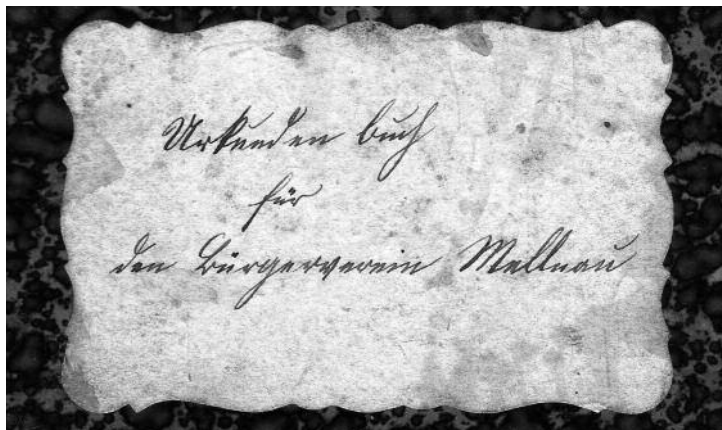 Urkunden buch
für
den Bürgerverein Mellnau